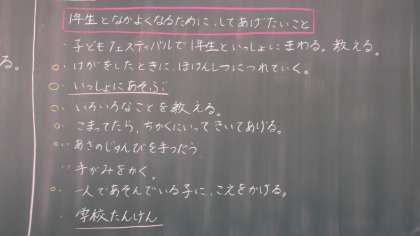 1年生となかよくなるために、してあげたいこと
・子どもフェスティバルで1年生といっしょにまわる。教える。
・けがをしたときに、ほけんしつにつれていく。
・いっしょにあそぶ
・いろいろなことを教える。
・こまってたら、ちかくにいってきいてあげる。
・あさのじゅんびを手つだう
・手がみをかく。
・一人であそんでいる子に、こえをかける。
・学校たんけん
る。